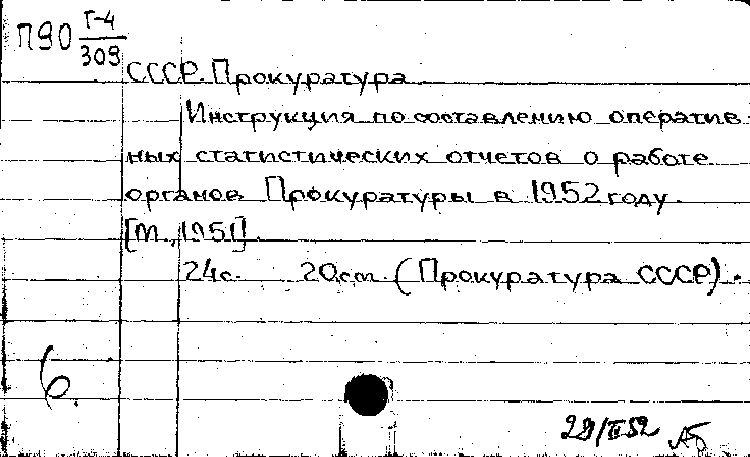 П90 Г-4
309
СССР. Прокуратура
Инструкция по составлению оператив-
ных статистических отчетов о работе
органов Прокуратуры в 1952 году.
[М., 1951]
24с. 20см. (Прокуратура СССР).
6.